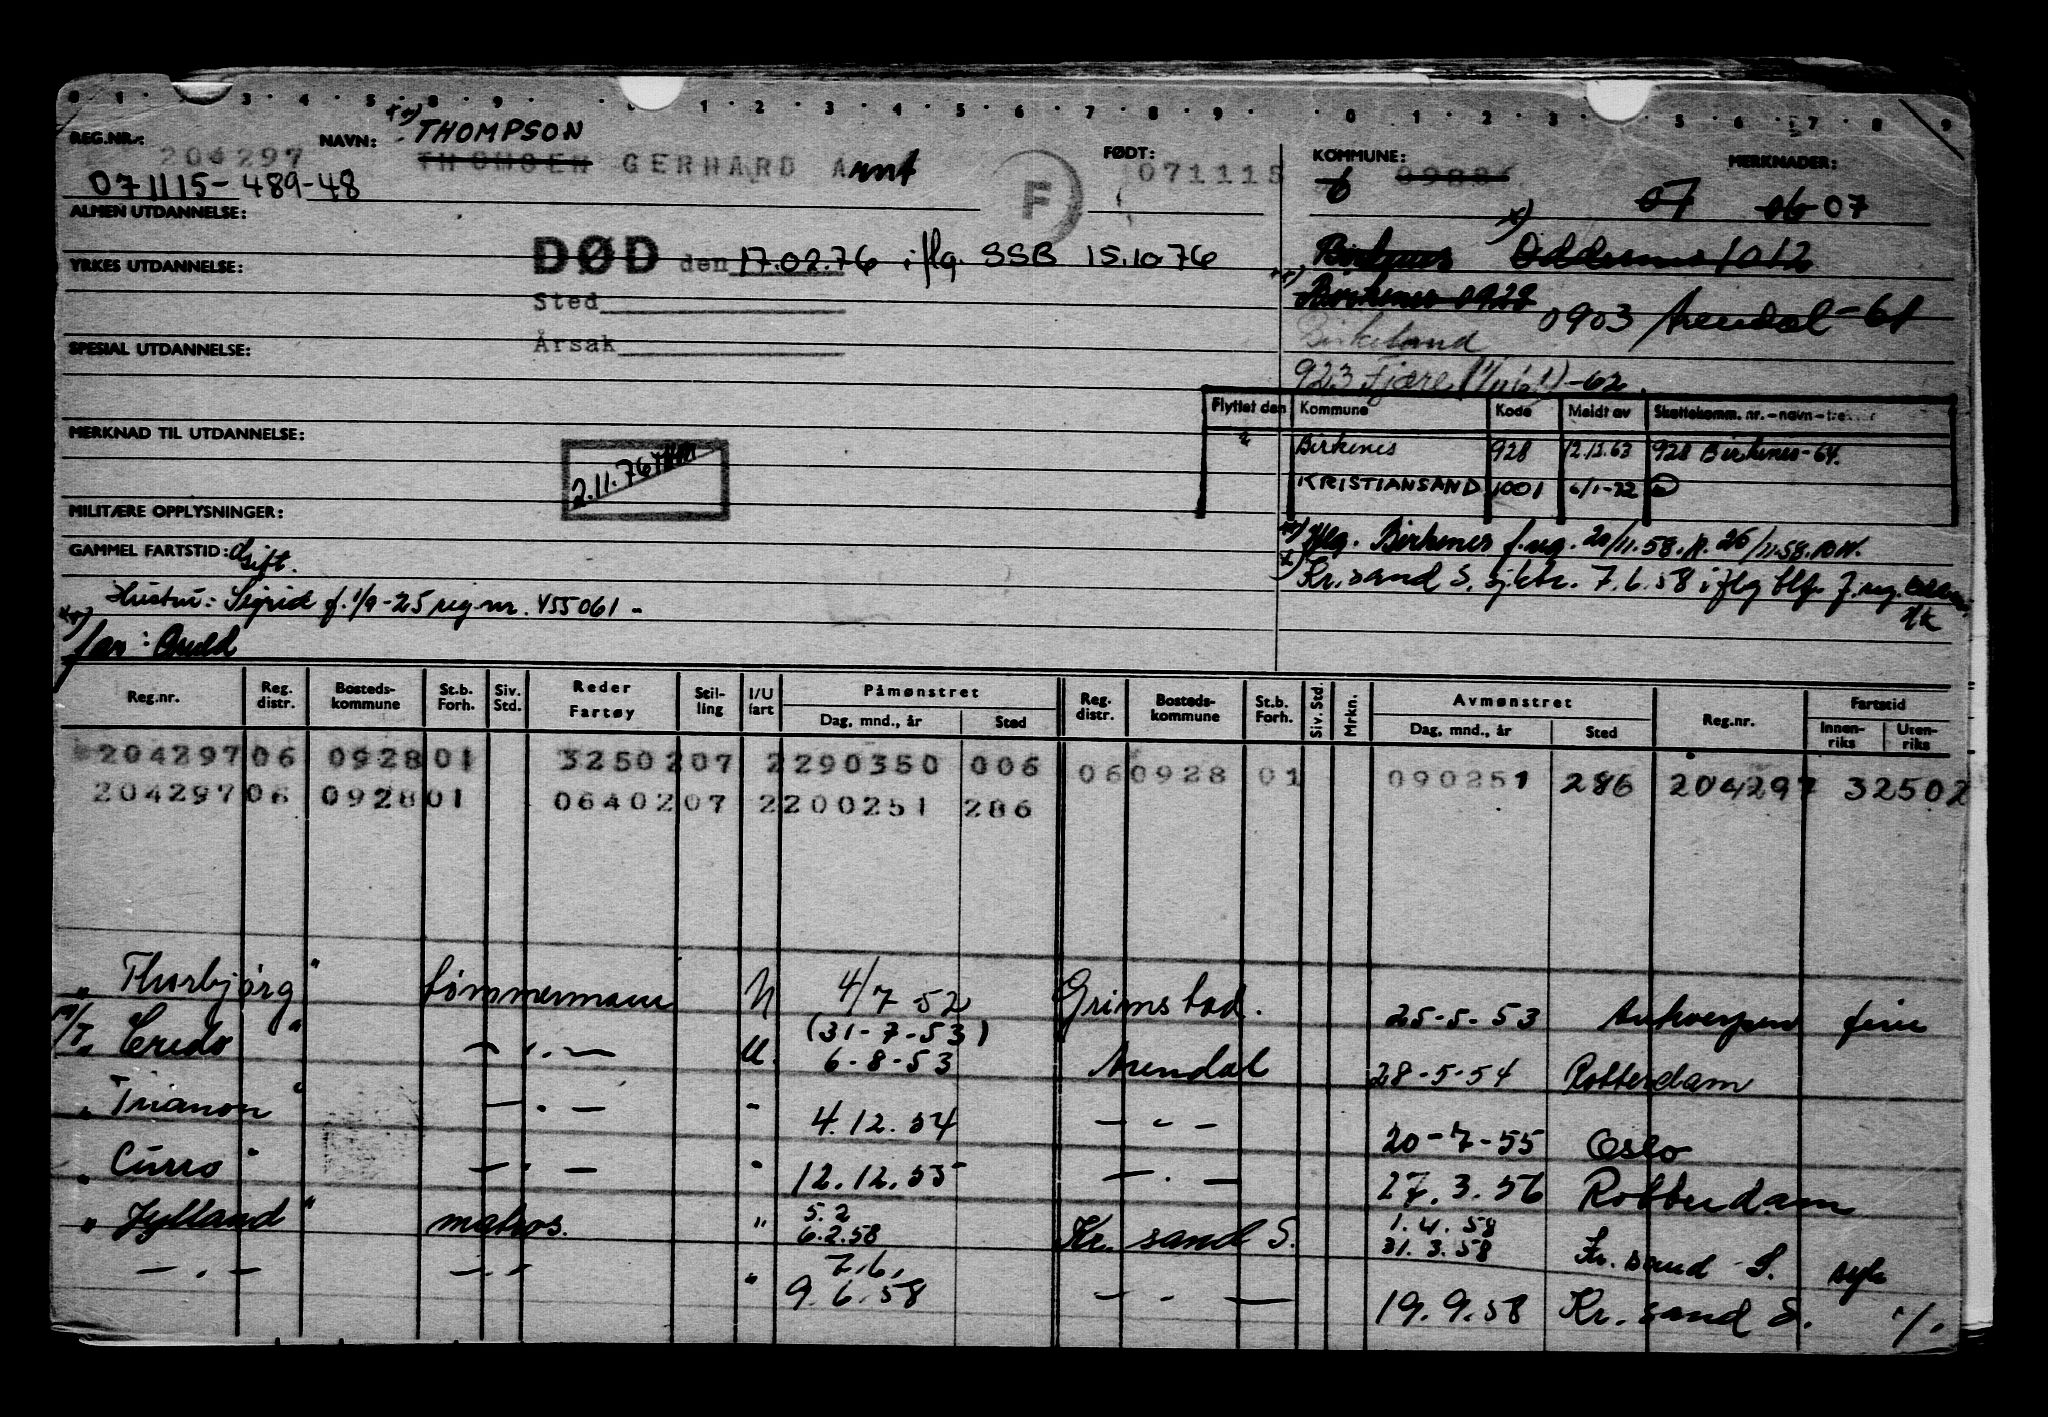 REG.NR.: 204297 NAVN: THOMPSON
THOMSEN GERHARD Arnt FØDT: 071115 KOMMUNE: MERKNADER:
071115-489-48 F 6 07 06 07
ALMEN UTDANNELSE:
DØD den 17.02.76 iflg. SSB 15.10 76 Birkenes Oddernes 1012
YRKES UTDANNELSE:
Sted Birkenes 0928
0903 Arendal - 61
Årsak Birkeland
SPESIAL UTDANNELSE:
923 Fjære -62.
Flyttet den Kommune Kode Meldt av Skattekomm. nr.-navn-
MERKNAD TIL UTDANNELSE:
Birkenes 928 12.12.63 928 Birkenes-64.
2.11.76 KRISTIANSAND 1001 6/1-72
MILITÆRE OPPLYSNINGER:
iflg. Birkenes f.reg. 20/11.58. 26/11.58.
GAMMEL FARTSTID: Gift.
Kr.sand S. sjktr. 7.6.58 iflg f.reg.
Hustru: Sigrid f. 1/9-25 reg nr. 455061 -
far:
Reg.nr. Reg. distr. Bosteds-kommune St.b. Forh. Siv. Std. Reder Fartøy Stil-ling I/U fart Påmønstret Dag, mnd., år Sted Reg. distr. Bosteds-kommune St.b. Forh. Siv. Std. Mrkn. Avmønstret Dag, mnd., år Sted Reg.nr. Fartstid Innen-riks Uten-riks
204297 06 0928 01 32502 07 2 290350 006 06 0928 01 090251 286 204297 32502
204297 06 0928 01 06402 07 2 200251 286
" Thorbjørg " tømmermann U 4/7 52 Grimstad. 25-5-53 Antwerpen ferie
M/T " Credo " - " - U. (31-7-53) 6-8-53 Arendal 28-5-54 Rotterdam
" Trianon " - " - " 4.12.54 - " - 20-7-55 Oslo
" Curro " - " - " 12.12.55 - " - 27.3.56 Rotterdam
" Jylland " matros. " 5.2 6.2.58 Kr. sand S. 1.4.58 31.3.58 Kr. sand S. syk
- " - - " - " 7.6. 9.6.58 - " - 19.9.58 Kr. sand S.